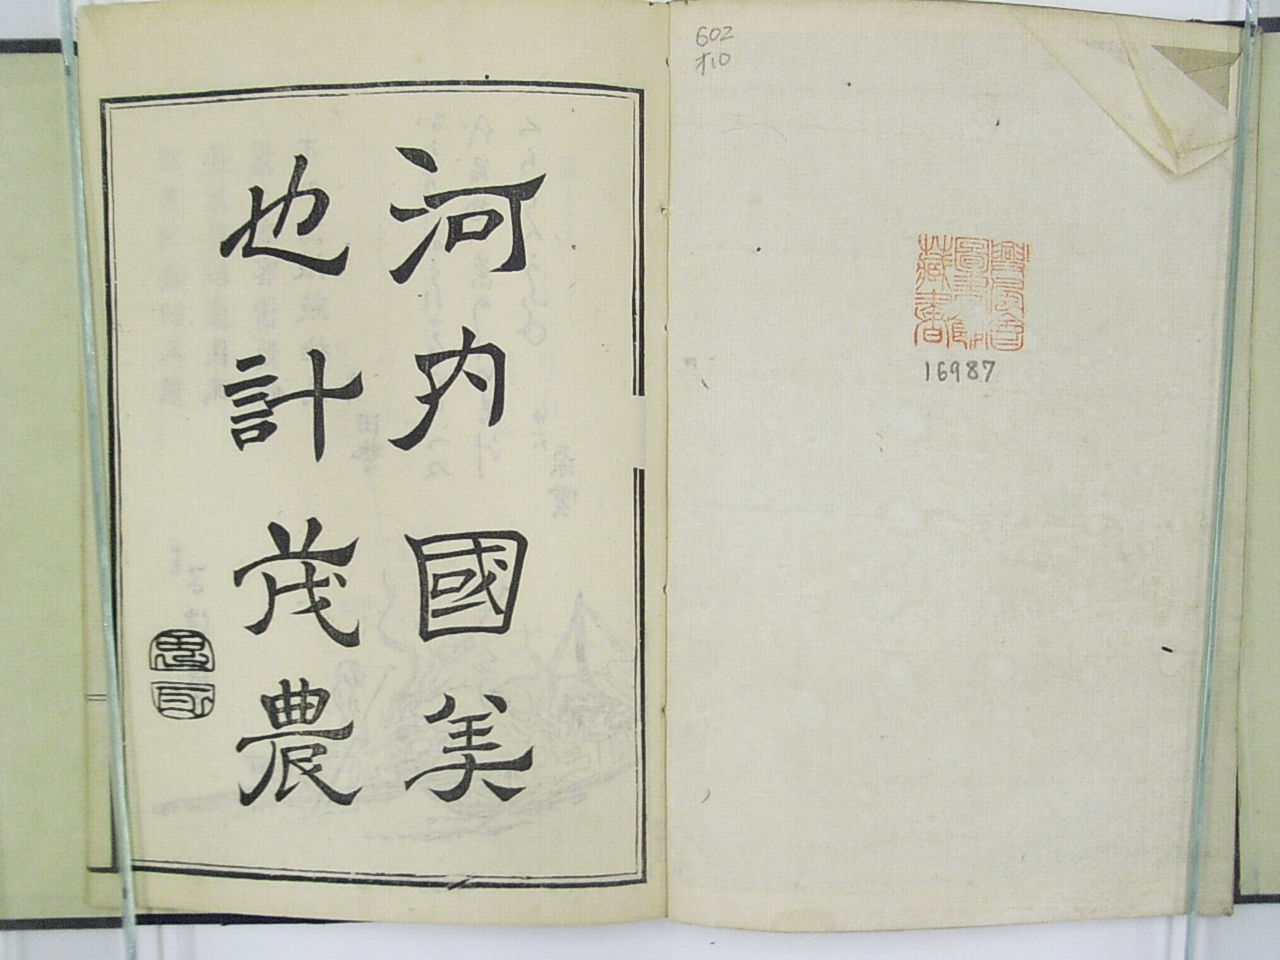 602
オ10
16987
河内國美
也計茂農